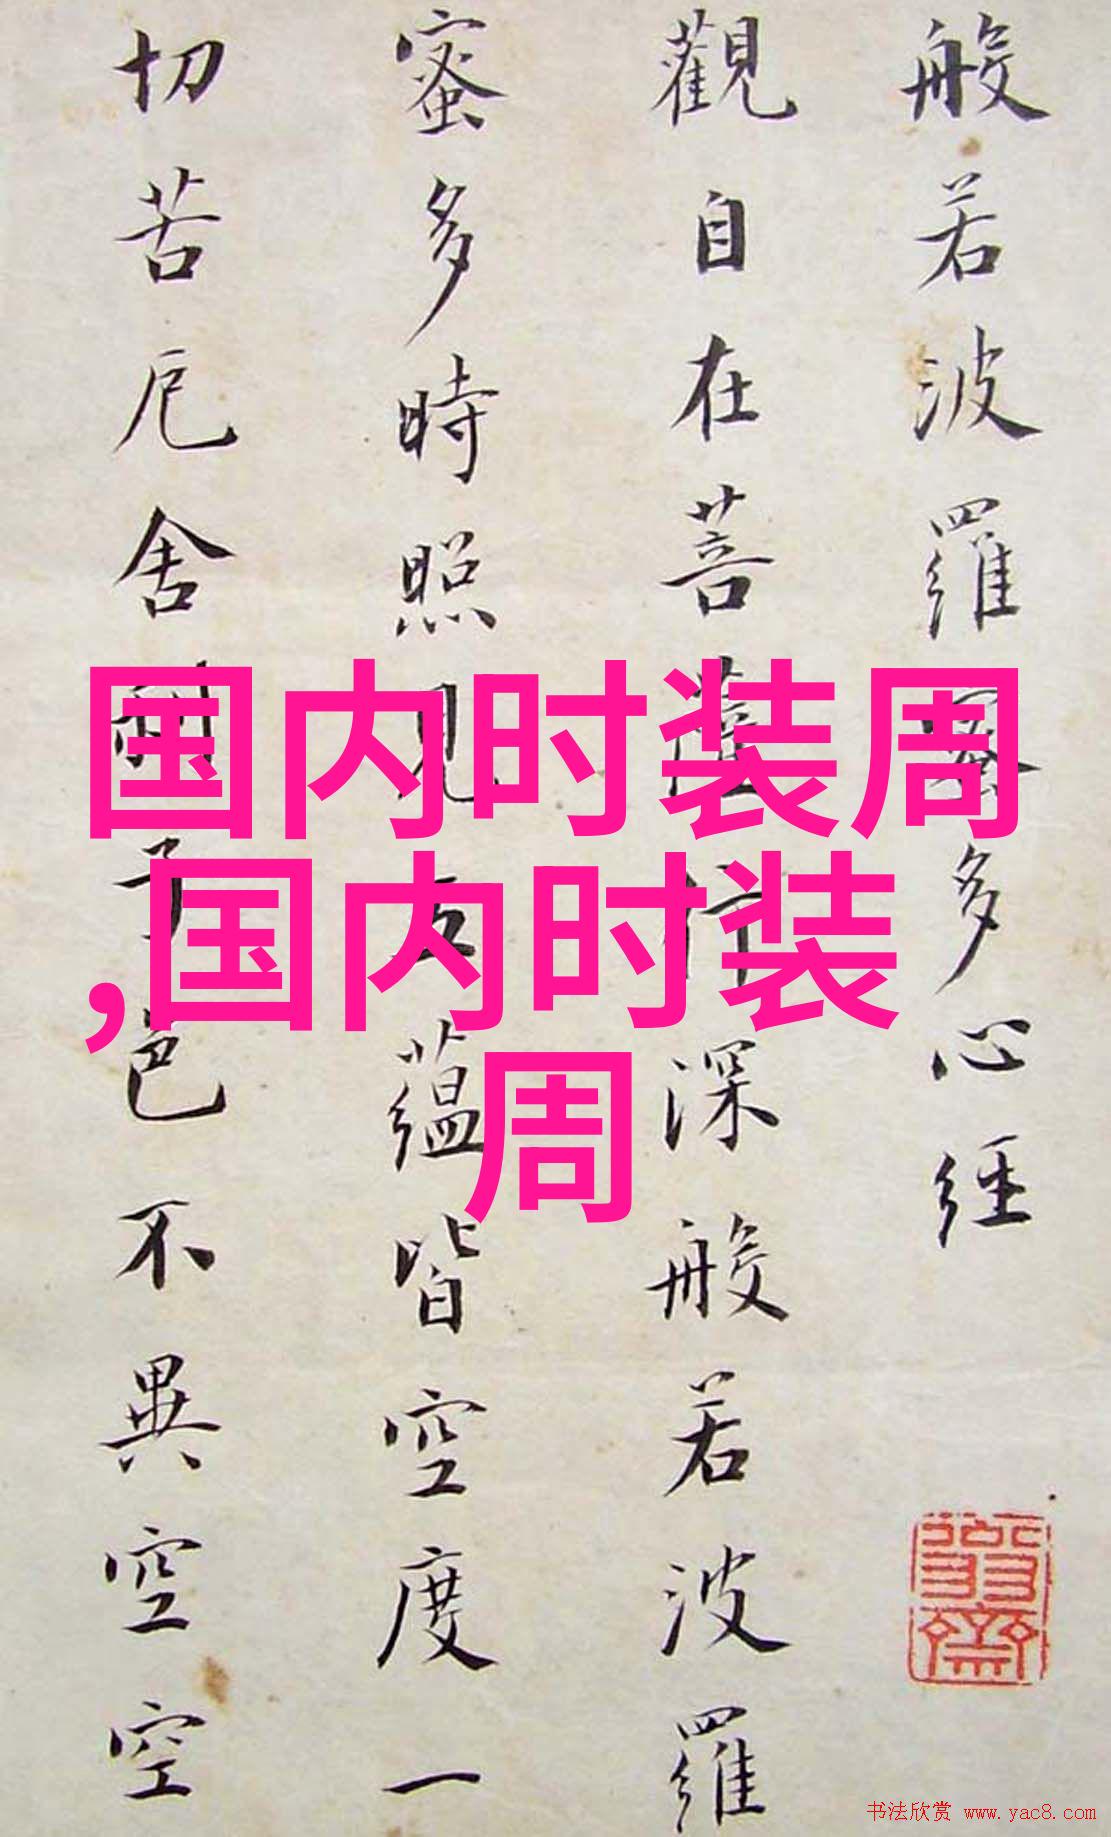 般若波羅蜜多心經
觀自在菩薩行深般若波羅
蜜多時照見五蘊皆空度一
切苦厄舍利子色不異空空
国内时装周
,国内时装
周
书法欣赏 www.yac8.com